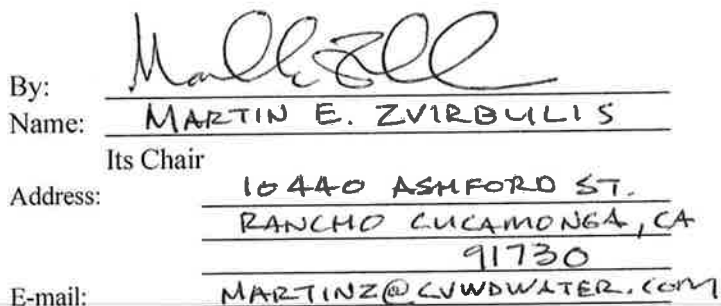 By:
Name: MARTIN E. ZVIRBULIS
Its Chair
Address: 10440 ASHFORD ST.
RANCHO CUCAMONGA, CA
91730
E-mail: MARTINZ@CVWDWATER.COM